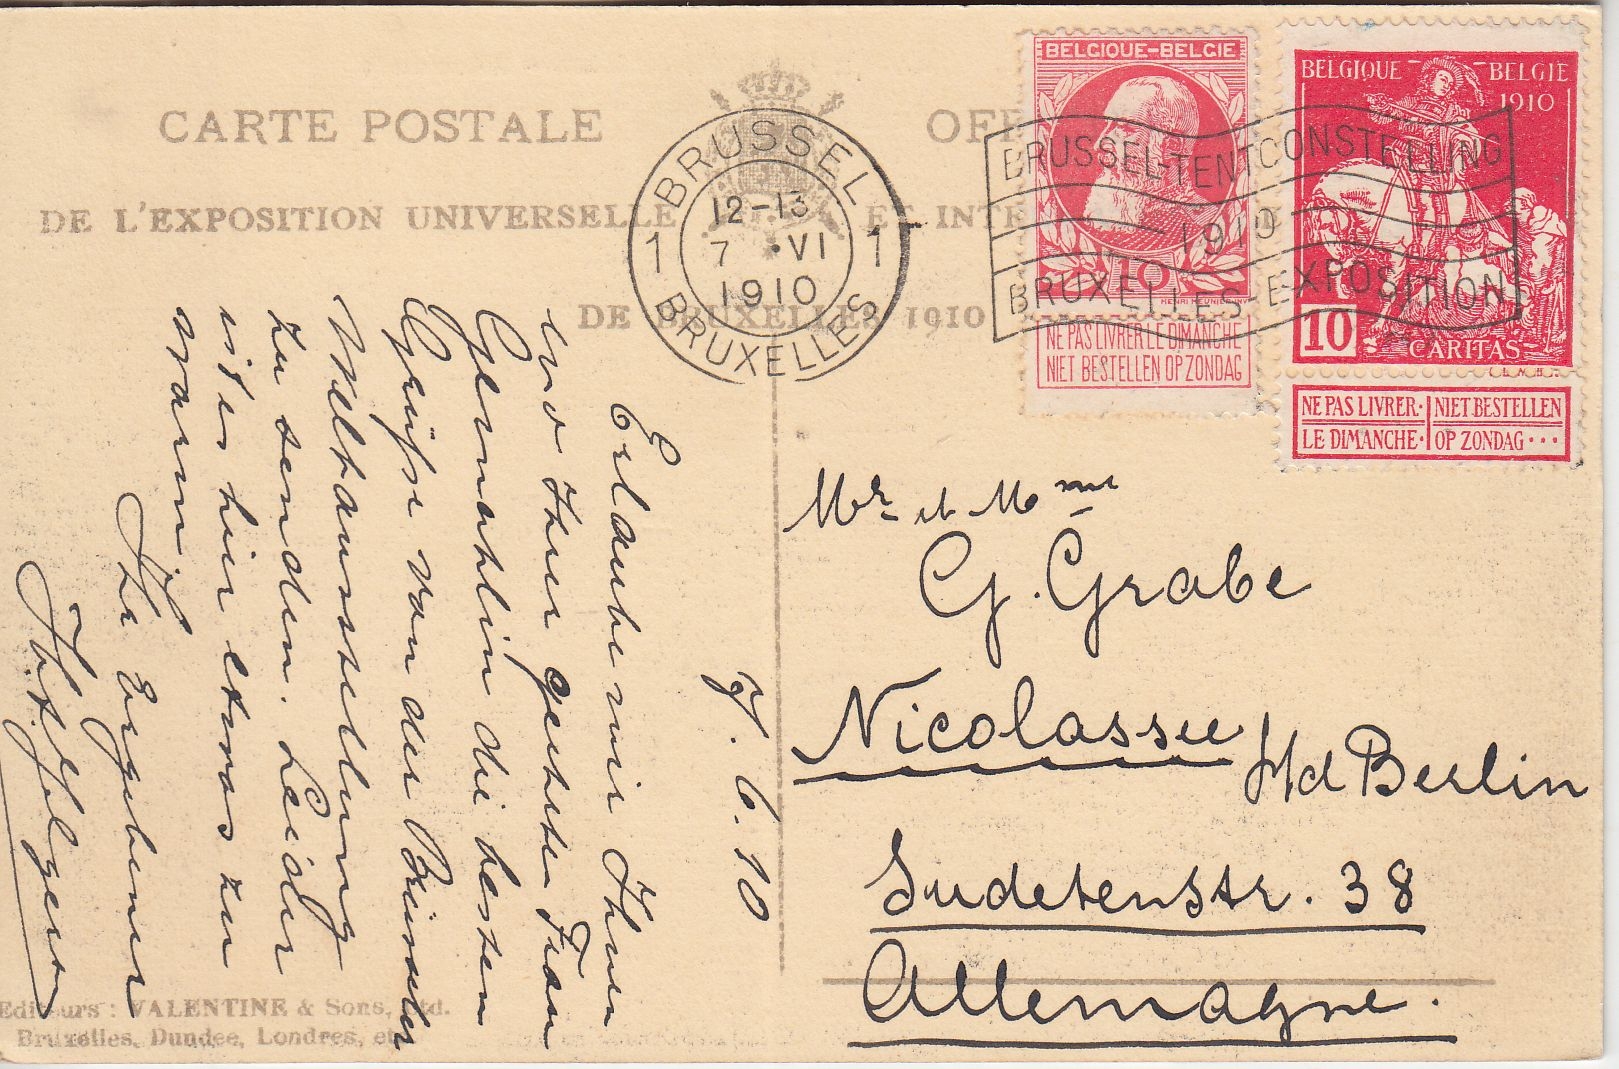 CARTE POSTALE OFF
DE L'EXPOSITION UNIVERSELLE ET INTE
DE BRUXELLES 1910
BRUSSEL
12-13
1 7 VI 1
1910
BRUXELLES
BRUSSEL-TENTOONSTELLING
1910
BRUXELLES-EXPOSITION
BELGIQUE-BELGIE
10
HENRI MEUNIER INV
NE PAS LIVRER LE DIMANCHE
NIET BESTELLEN OP ZONDAG
BELGIQUE BELGIE
1910
10
CARITAS
NE PAS LIVRER NIET BESTELLEN
LE DIMANCHE OP ZONDAG
7.6.10
Erlaube mir Ihnen
und Ihrer geehrten Frau
Gemahlin die besten
Grüsse von der Brüsseler
Weltausstellung
zu senden. Leider
ist es hier etwas zu
warm
Ihr Ergebener
Mr et Mme
G. Grabe
Nicolassee
b/d Berlin
Sudetenstr. 38
Allemagne.
Editeurs : VALENTINE & Sons, Ltd.
Bruxelles, Dundee, Londres, etc